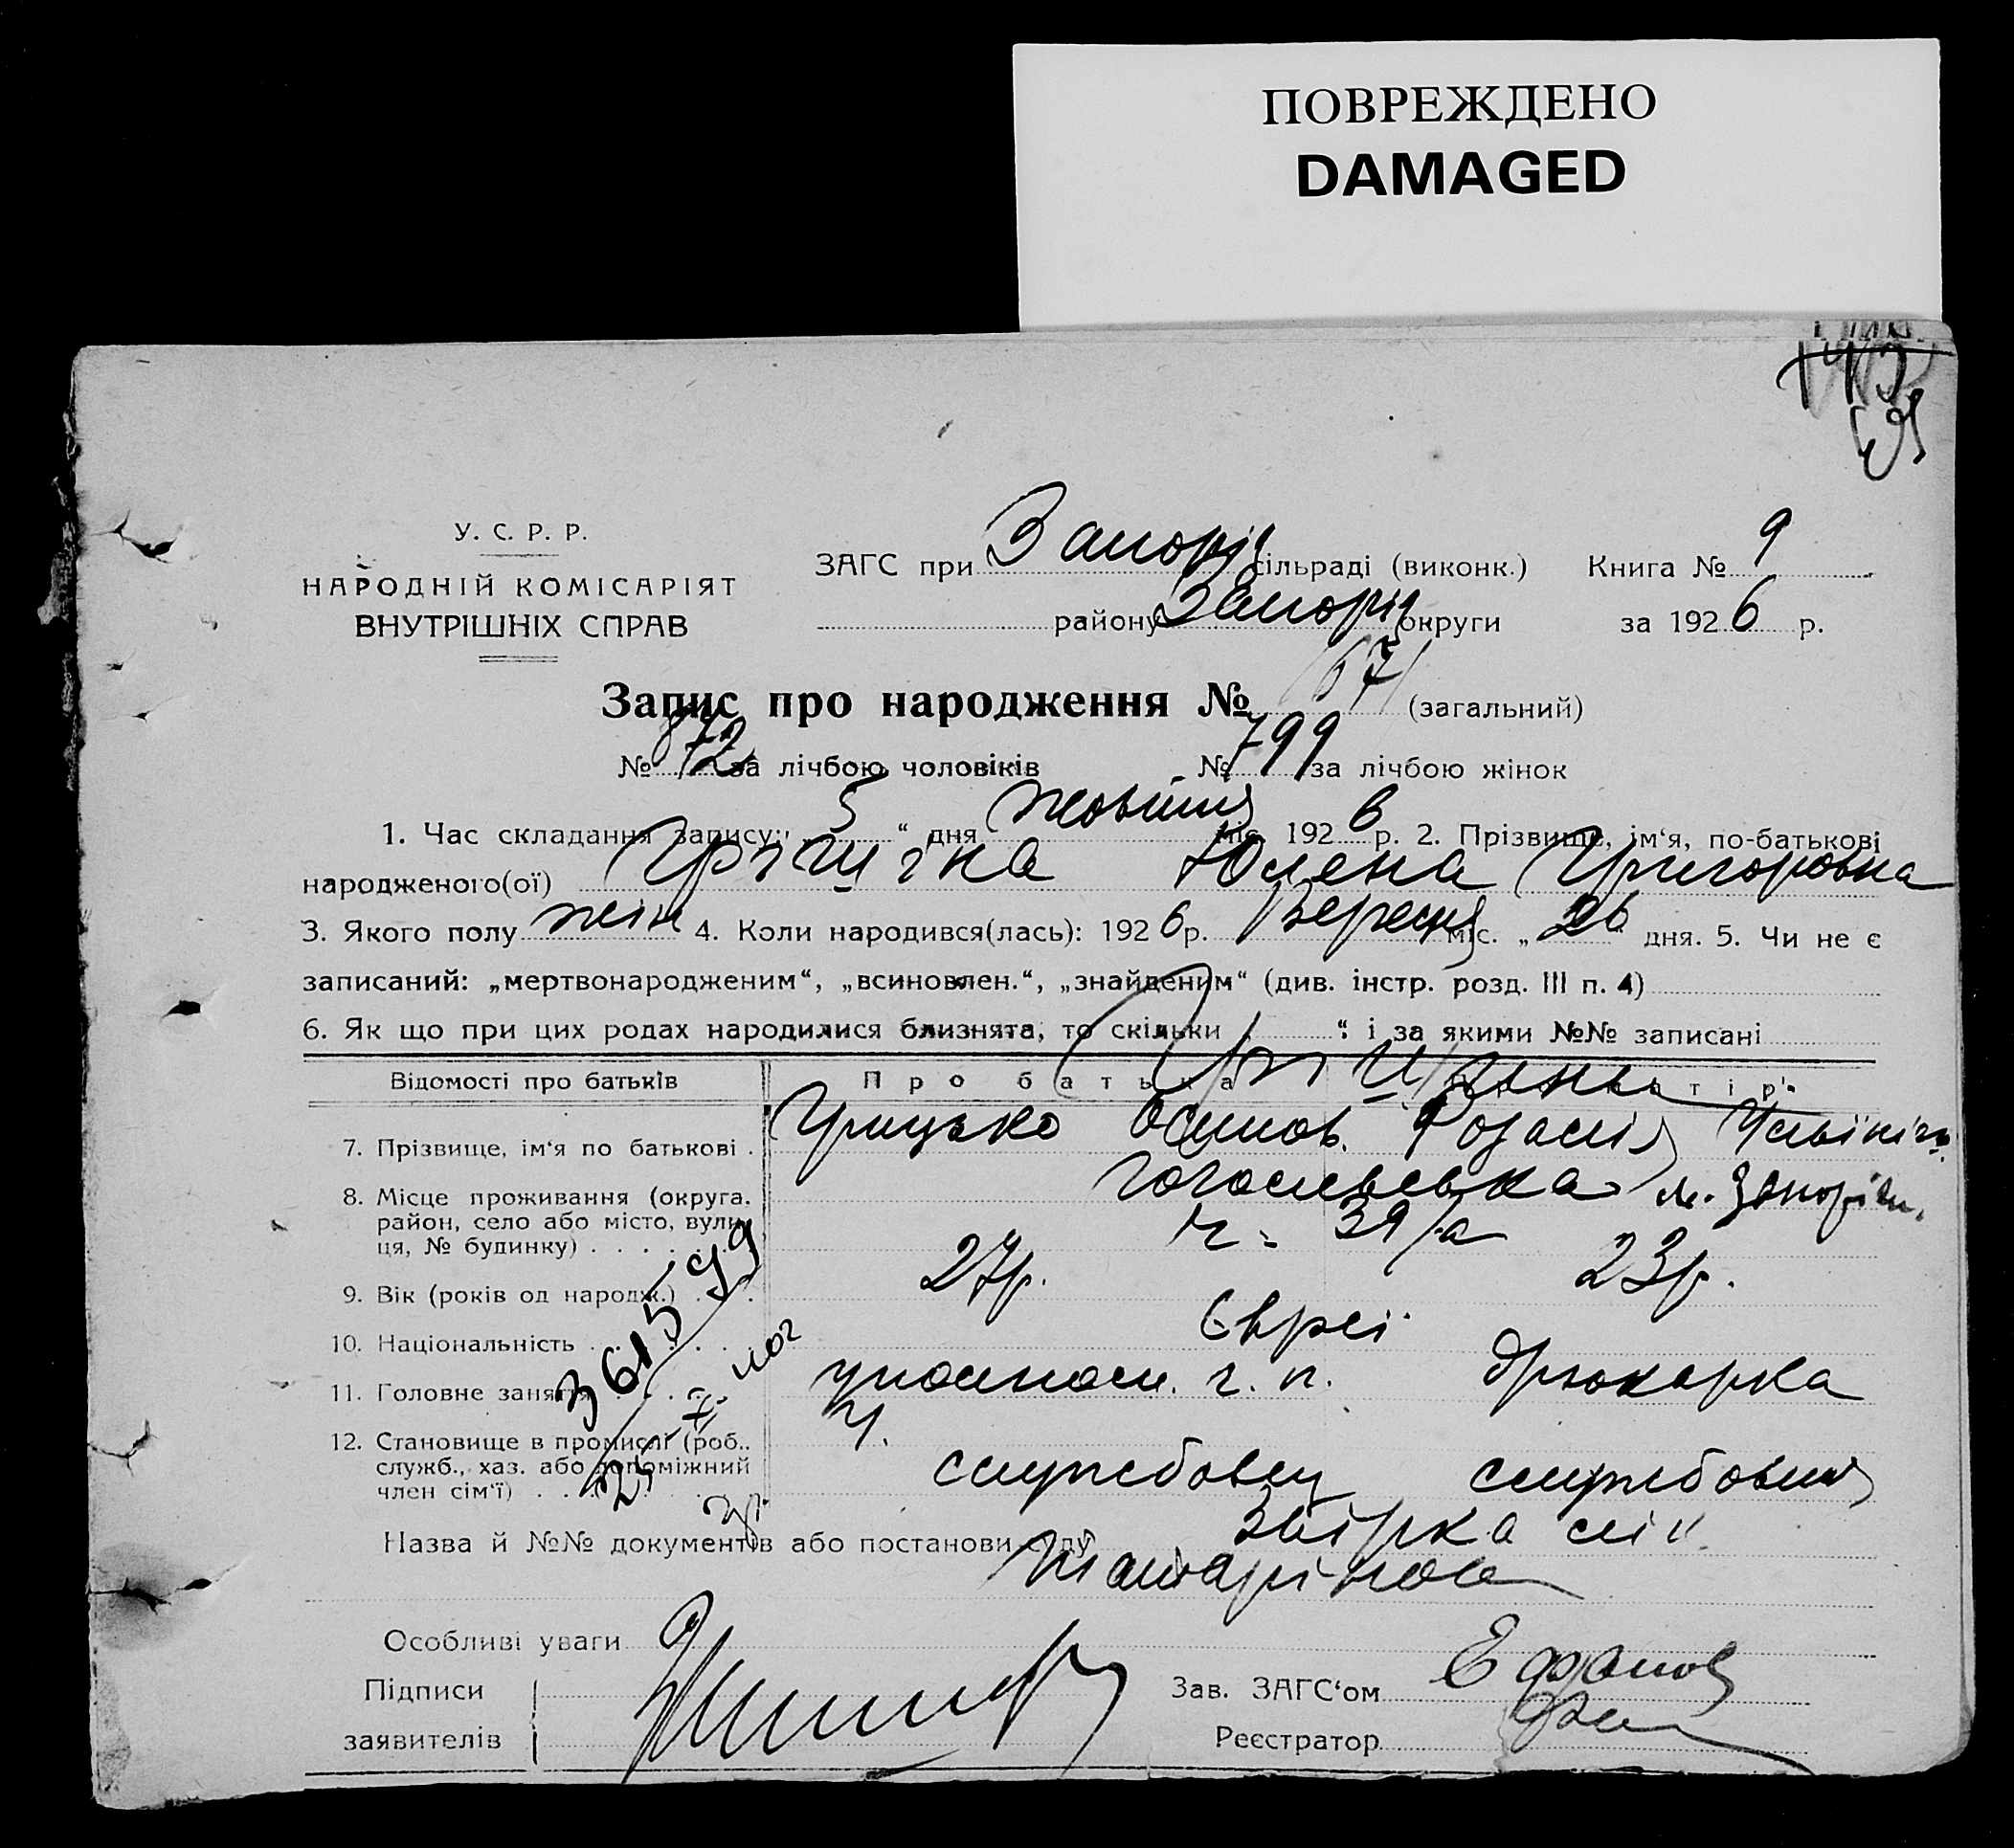 ПОВРЕЖДЕНО
DAMAGED
У. С. Р. Р.
НАРОДНІЙ КОМІСАРІЯТ
ВНУТРІШНІХ СПРАВ
ЗАГС при Запоріз сільраді (виконк.) Книга № 9
району Запоріз округи за 1926 р.
Запис про народження № 1671 (загальний)
№ 872 за лічбою чоловіків № 799 за лічбою жінок
1. Час складання запису: „5“ дня жовтня міс. 1926 р. 2. Прізвище, ім‘я, по-батькові
народженого(ої) Юлена Григоровна
3. Якого полу жін 4. Коли народився(лась): 1926 р. Вересня міс. „26“ дня. 5. Чи не є
записаний: „мертвонародженим“, „всиновлен.“, „знайденим“ (див. інстр. розд. III п. 4)
6. Як що при цих родах народилися близнята, то скільки „ “: і за якими №№ записані
Відомості про батьків Про батька Про матір
7. Прізвище, ім‘я по батькові . Грицько Осипов. Розалія
8. Місце проживання (округа, Гоголевська м. Запоріж.
район, село або місто, вули-
ця, № будинку) . . . . ч. 39/а
9. Вік (років од народж.) . . . 27р. 23р.
10. Національність . . . . Євреї
11. Головне заняття . . . . г. п. друкарка
12. Становище в промислі (роб.,
служб., хаз. або допоміжний службовец службовця
член сім‘ї) . . . .
361599
Назва й №№ документів або постанови суду Звірка
Особливі уваги
Підписи
заявителів
Зав. ЗАГС‘ом Ефанов
Реєстратор